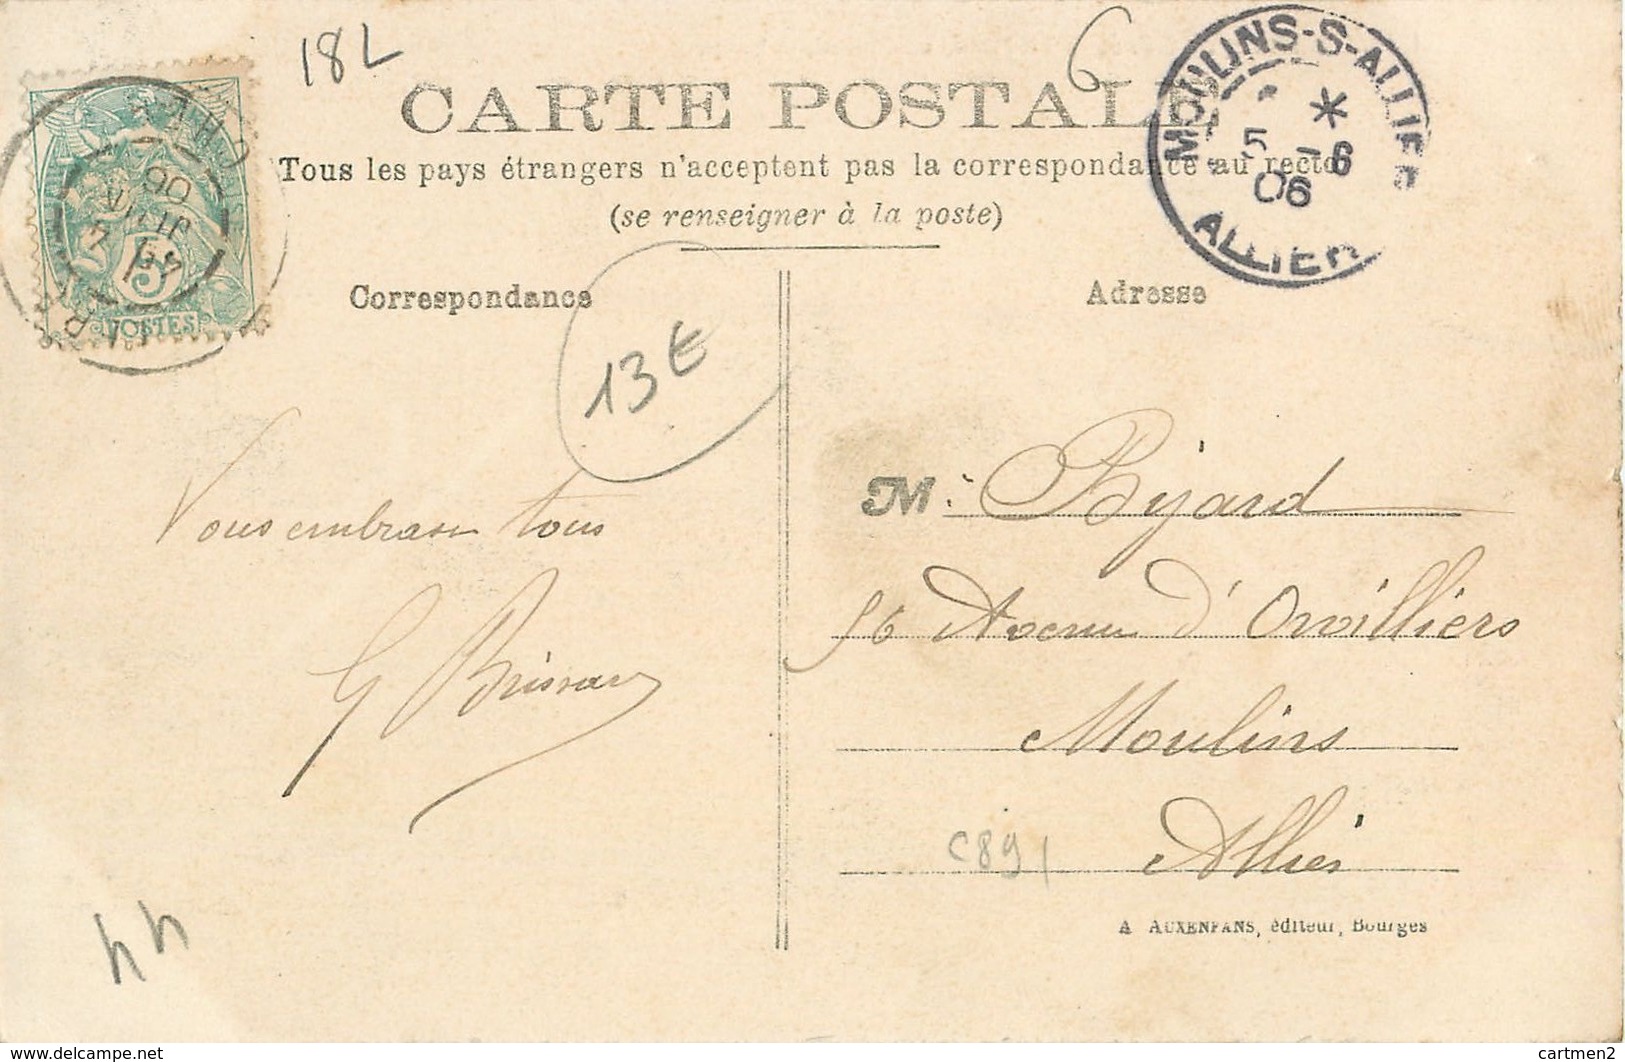 18L
6
CARTE POSTALE
Tous les pays étrangers n'acceptent pas la correspondance au recto
(se renseigner à la poste)
MOULINS-S-ALLIER
5 -6
06
ALLIER
24
JUIN
06
5
POSTES
Correspondance
Adresse
13E
Vous embrasse tous
G Brisson
M. Bijard
56 Avenue d'Orvilliers
Moulins
Allier
C891
44
A AUXENFANS, éditeur, Bourges
delcampe.net
cartmen2